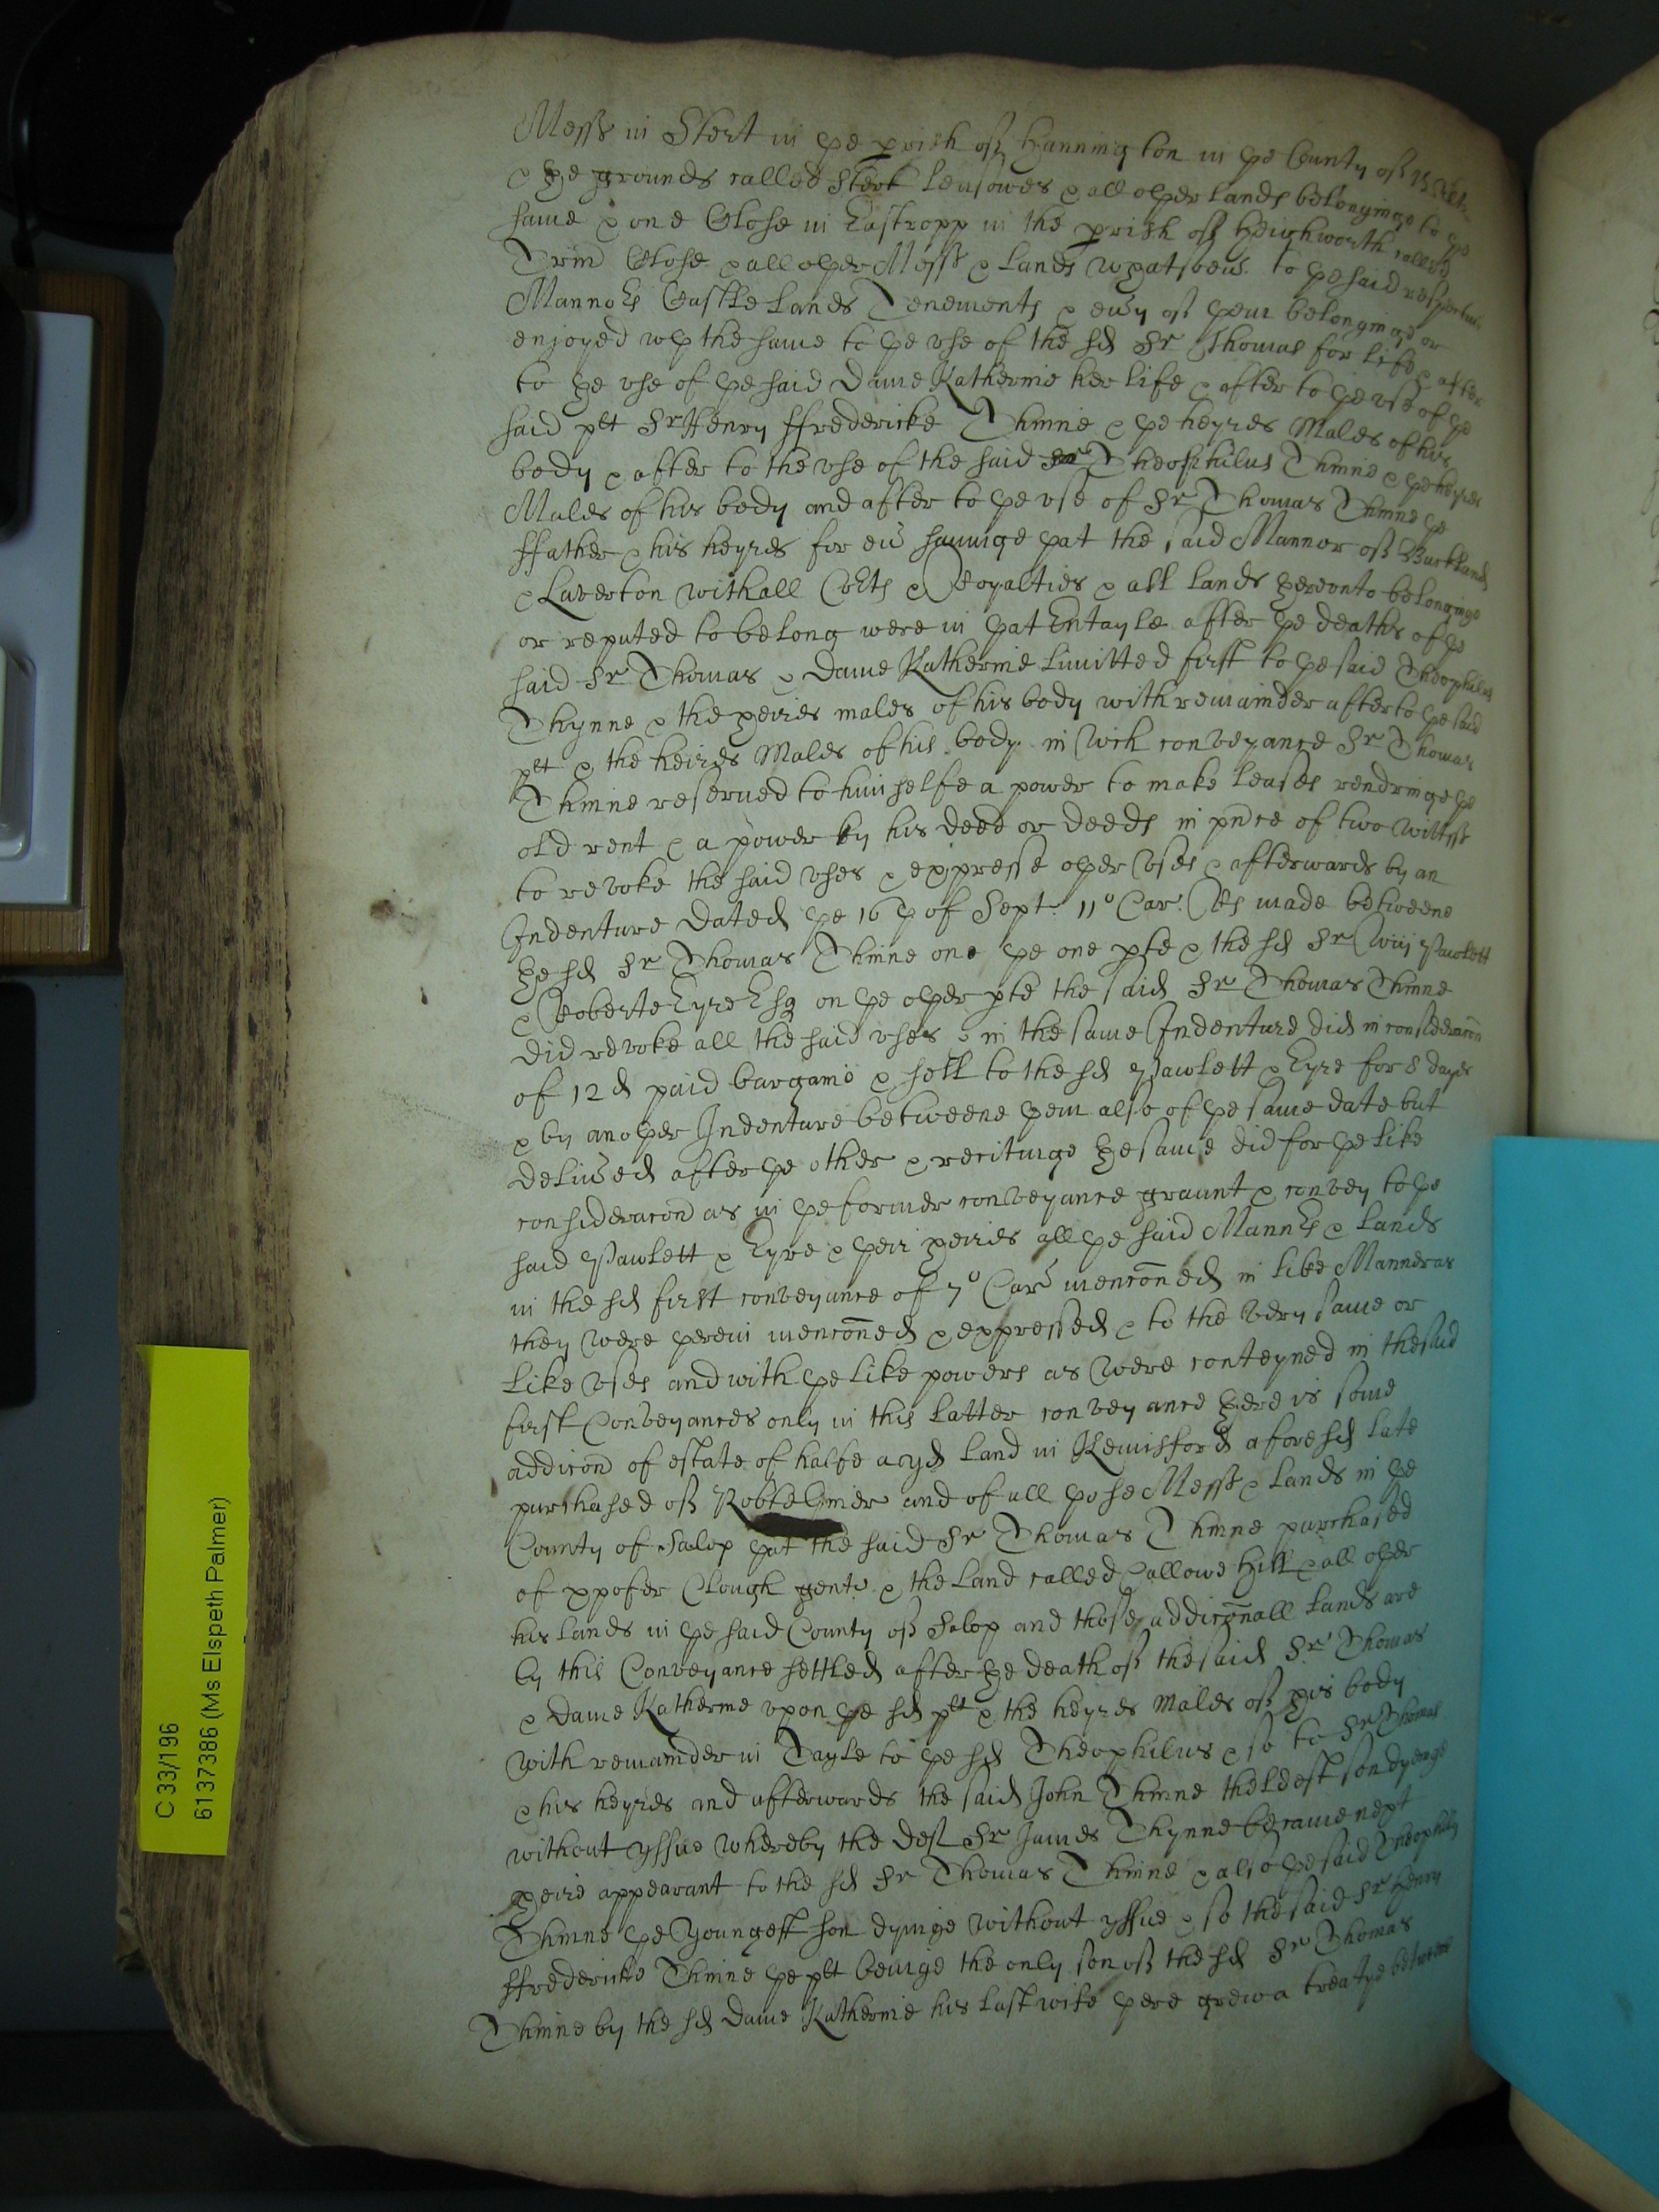 Messs in Stert in þe prish of Hannington in þe County of Wilts
& þe grounds called Stert Leasowes & all oþer lands belonginge to þe
same & one Close in Eastropp in the prish of Heighworth called
Trin Close & all oþer Messs & lands whatsoeu to þe said respective
Mannors Castle lands Tenements & euy of þem belonginge or
enjoyed wth the same to þe vse of the sd Sr Thomas for life & after
to þe vse of þe said Dame Katherine her life & after to þe vse of þe
said plt Sr Henry ffredericke Thinne & þe heyres Males of his
body & after to the vse of the said Theophilus Thinne & þe heyres
Males of his body and after to þe vse of Sr Thomas Thinne þe
ffather & his heyres for eu sauinge þat the said Mannor of Buckland
& Laverton with all Corts & Royalties & all lands þerevnto belonginge
or reputed to belong were in þat Entayle after þe deaths of þe
said Sr Thomas & Dame Katherine limitted first to þe said Theophilus
Thynne & the heires males of his body with remainder after to þe said
plt & the heires Males of his body in wch conveyance Sr Thomas
Thinne reserued to himselfe a power to make leases rendringe þe
old rent & a power by his deed or deeds in pnce of two wittss
to revoke the said vses & expresse oþer vses & afterwards by an
Indenture Dated þe 16th of Sept. 11o Car. Rs made betweene
þe sd Sr Thomas Thinne one þe one pte & the sd Sr Wm Pawlett
& Roberte Eyre Esq on þe oþer pte the said Sr Thomas Thinne
did revoke all the said vses & in the same Indenture did in consideracon
of 12d paid bargaine & sell to the sd Pawlett & Eyre for 8 dayes
& by anoþer Indenture betweene þem also of þe same date but
deliued after þe other & recitinge þe same did for þe like
consideracon as in þe former conveyance graunt & convey to þe
said Pawlett & Eyre & þeir heires all þe said Mannrs & lands
in the sd first conveyance of 7o Car menconed in like Manner as
they were þerein menconed & expressed & to the very same or
like vses and with þe like powers as were conteyned in the said
first Conveyances only in this latter conveyance þere is some
addicon of estate of halfe a yd land in Kemisford aforesd late
purchased of Robte Gmer and of all þose Messs & lands in þe
County of Salop þat the said Sr Thomas Thinne purchased
of xpofer Clough gent & the land called Callowe Hill & all oþer
his lands in þe said County of Salop and those addiconall lands are
by this Conveyance settled after þe death of the said Sr Thomas
& dame Katherine vpon þe sd plt & the heyres Males of his body
with remainder in Tayle to þe sd Theophilus & so to Sr Thomas
& his heyres and afterwards the said John Thinne theldest son dyenge
without yssue whereby the deft Sr James Thynne became next
heire appearant to the sd Sr Thomas Thinne & also þe said Theophilus
Thinne þe youngest son dyinge without yssue & so the said Sr Henry
ffredericke Thinne þe plt beinge the only son of the sd Sr Thomas
Thinne by the sd Dame Katherine his last wife þere grew a treatye betweene
C 33/196
6137386 (Ms Elspeth Palmer)